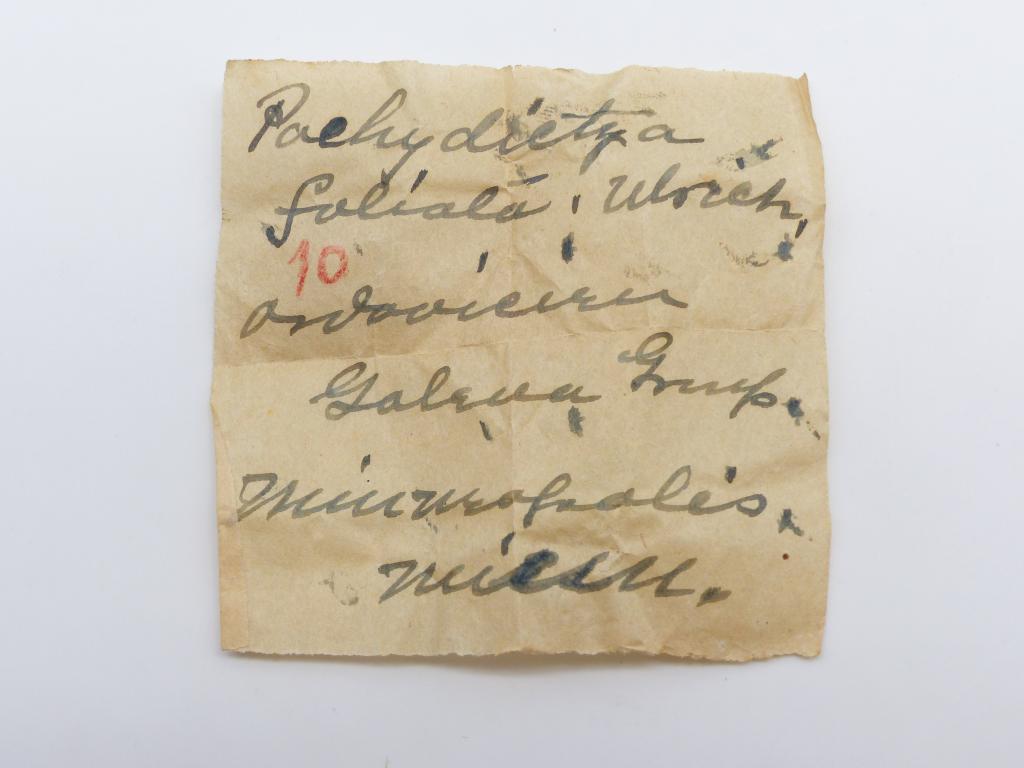 Pachydictya
foliata, Ulrich,
10
Ordovicien
Galena Group.
Minneapolis.
Minn.